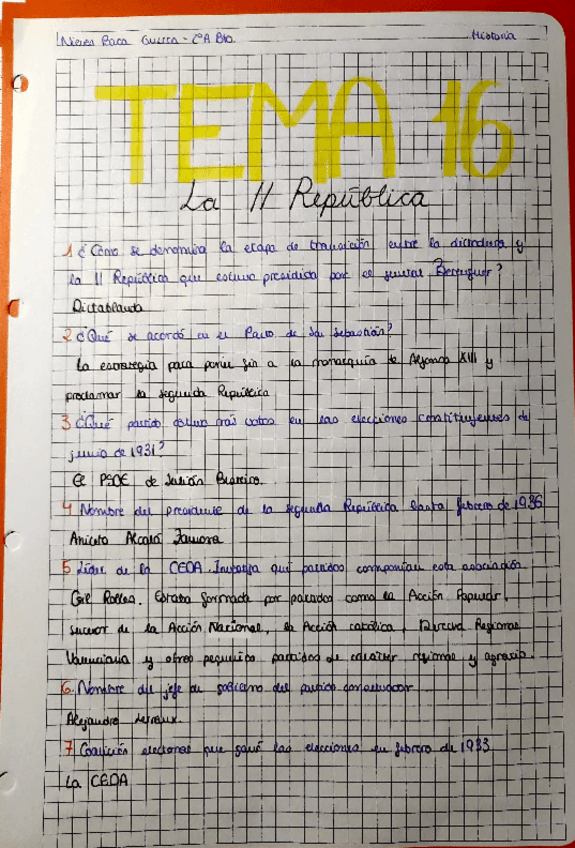 Nieves Baca Guerra - 2ºA Bto. Historia
TEMA 16
La II República
1 ¿Cómo se denomina la etapa de transición entre la dictadura y
la II República que estuvo presidida por el general Berenguer?
Dictablanda
2 ¿Qué se acordó en el Pacto de San Sebastián?
La estrategia para poner fin a la monarquía de Alfonso XIII y
proclamar la segunda República
3 ¿Qué partido obtuvo más votos en las elecciones constituyentes de
junio de 1931?
El PSOE de Julián Besteiro.
4 Nombre del presidente de la segunda República hasta febrero de 1936
Aniceto Alcalá Zamora
5 Líder de la CEDA. Investiga qué partidos componían esta asociación
Gil Robles. Estaba formada por partidos como la Acción Popular,
sucesor de la Acción Nacional, la Acción católica, Derecha Regional
Valenciana y otros pequeños partidos de carácter regional y agrario.
6. Nombre del jefe de gobierno del partido conservador
Alejandro Lerroux.
7 Coalición electoral que ganó las elecciones en febrero de 1933
La CEDA